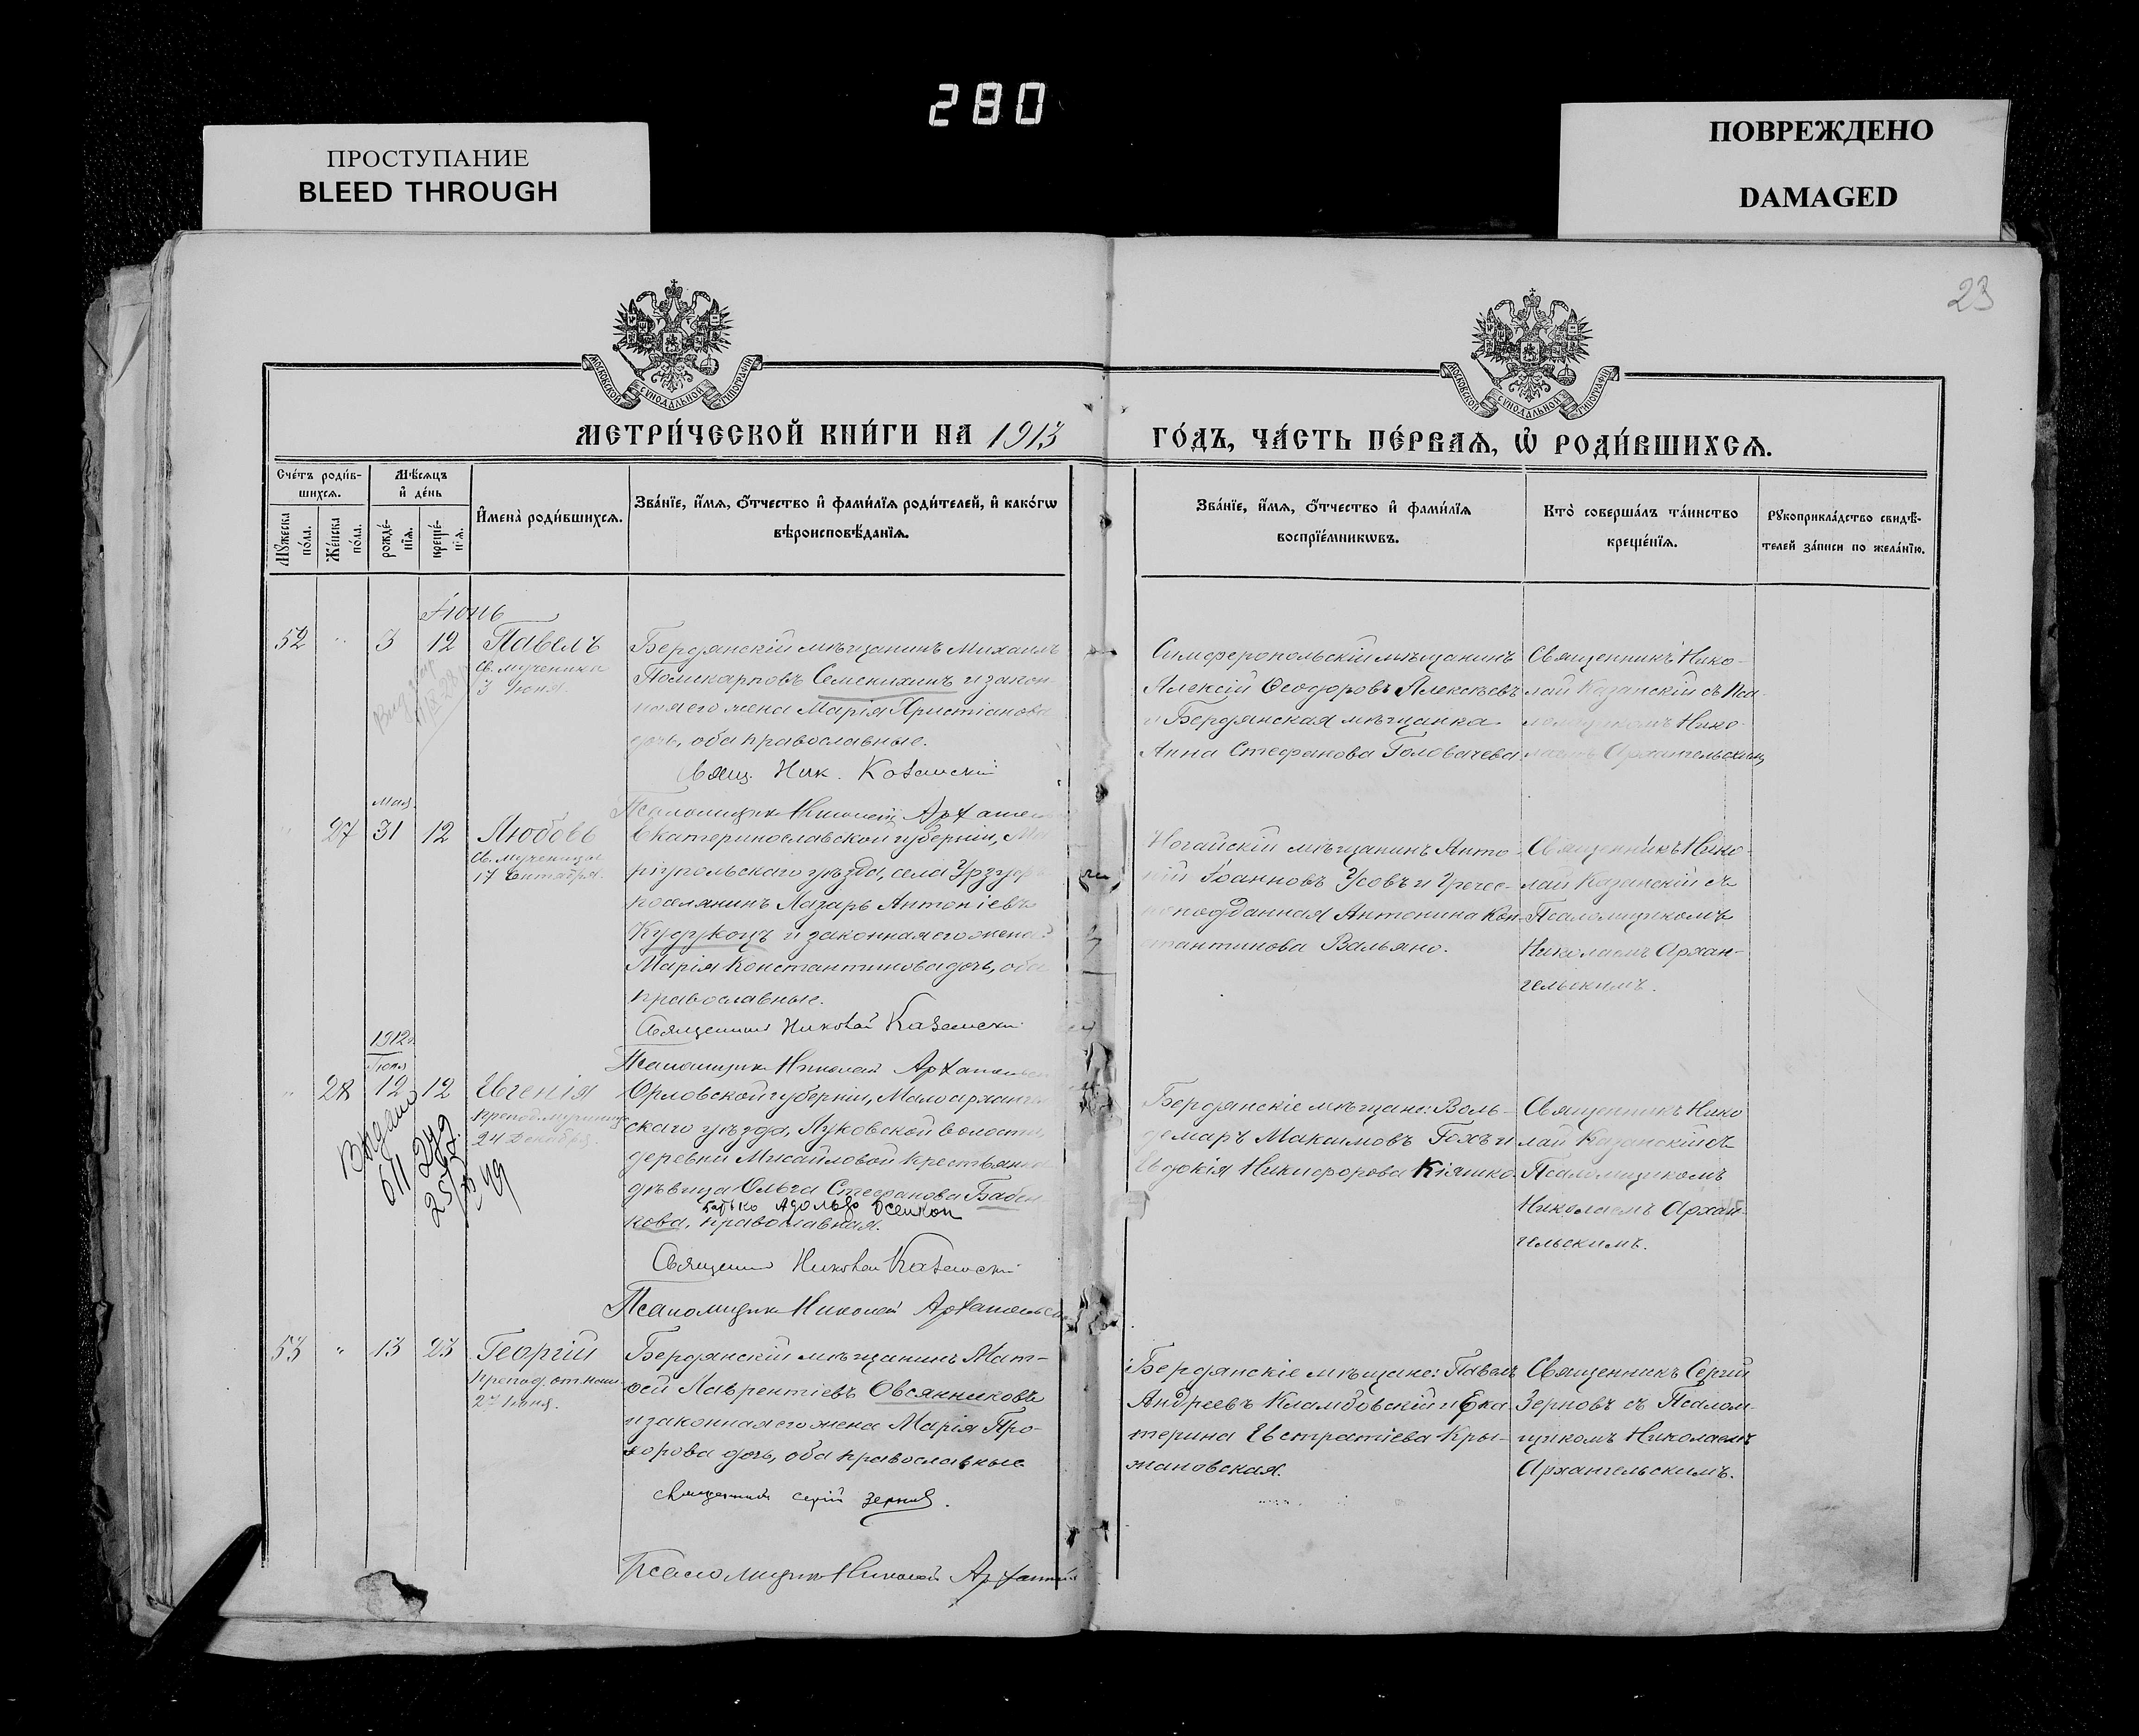 280
ПРОСТУПАНИЕ
BLEED THROUGH
ПОВРЕЖДЕНО
DAMAGED
23
МОСКОВСКОЙ СѴНОДАЛЬНОЙ ТИПОГРАФІИ
МОСКОВСКОЙ СѴНОДАЛЬНОЙ ТИПОГРАФІИ
МЕТРИ́ЧЕСКОЙ КНИ́ГИ НА 1913
ГО́ДЪ, ЧА́СТЬ ПЕ́РВАѦ, Ѡ҆ РОДИ́ВШИХСѦ.
Сче́тъ роди́в-
шихсѧ.
Мꙋжеска по́ла.
Же́нска по́ла.
Мѣ́сѧцъ
и҆ де́нь
рожде́-
нїѧ.
креще́-
нїѧ.
И҆мена̀ роди́вшихсѧ.
Зва́нїе, и҆́мѧ, ѻ҆́тчество и҆ фами́лїѧ роди́телей, и҆ како́гѡ
вѣроисповѣ́данїѧ.
Зва́нїе, и҆́мѧ, ѻ҆́тчество и҆ фами́лїѧ
воспрїе́мникѡвъ.
Кто̀ соверша́лъ та́инство
креще́нїѧ.
Рꙋкоприкла́дство свидѣ́-
телей за́писи по жела́нїю.
Іюнь
52 " 3 12 Павелъ
Св. мученика
3 Іюня.
Бердянскій мѣщанинъ Михаилъ
Поликарповъ Семенихинъ и закон-
ная его жена Марія Христіанова
дочь, оба православные.
Свящ. Ник. Казанскій
Псаломщикъ Николай Архангельскій
Симферопольскій мѣщанинъ
Алексій Ѳеодоровъ Алексѣевъ
и Бердянская мѣщанка
Анна Стефанова Головачева
Священникъ Нико-
лай Казанскій съ Пса-
ломщикомъ Нико-
лаемъ Архангельскимъ
Мая
" 27 31 12 Любовь
Св. мученицы
17 Сентября.
Екатеринославской губерніи, Ма-
ріупольскаго уѣзда, села Урзуфъ
поселянинъ Лазарь Антоніевъ
и законная его жена
Марія Константинова дочь, оба
православные.
Священникъ Николай Казанскій
Псаломщикъ Николай Архангельскій
Ногайскій мѣщанинъ Анто-
ній Іоанновъ Усовъ и Гречес-
коподданная Антонина Кон-
стантинова Вальяно.
Священникъ Нико-
лай Казанскій съ
Псаломщикомъ
Николаемъ Архан-
гельскимъ.
1912 г.
Іюня
" 28 12 12 Евгенія
Препод. мученицы
24 Декабря.
Выдано
Орловской губерніи, Малоархангель-
скаго уѣзда, Луковской волости,
деревни Мисайловой крестьянка
дѣвица Ольга Стефанова Бабен-
кова, православная.
Священникъ Николай Казанскій
Псаломщикъ Николай Архангельскій
Бердянскіе мѣщане: Воль-
демаръ Максимовъ Гохъ и
Евдокія Никифорова Кіяшко.
Священникъ Нико
лай Казанскій съ
Псаломщикомъ
Николаемъ Архан-
гельскимъ.
53 " 13 23 Георгій
27 Іюня.
Бердянскій мѣщанинъ Мат-
ѳей Лаврентіевъ Овсянниковъ
и законная его жена Марія Про-
хорова дочь, оба православные
Священникъ Сергій Зерновъ.
Псаломщикъ Николай Архангельскій
Бердянскіе мѣщане: Павелъ
Андреевъ Кламбовскій и Ека-
терина Евстратіева Кры-
жановская.
Священникъ Сергій
Зерновъ съ Псалом-
щикомъ Николаемъ
Архангельскимъ.